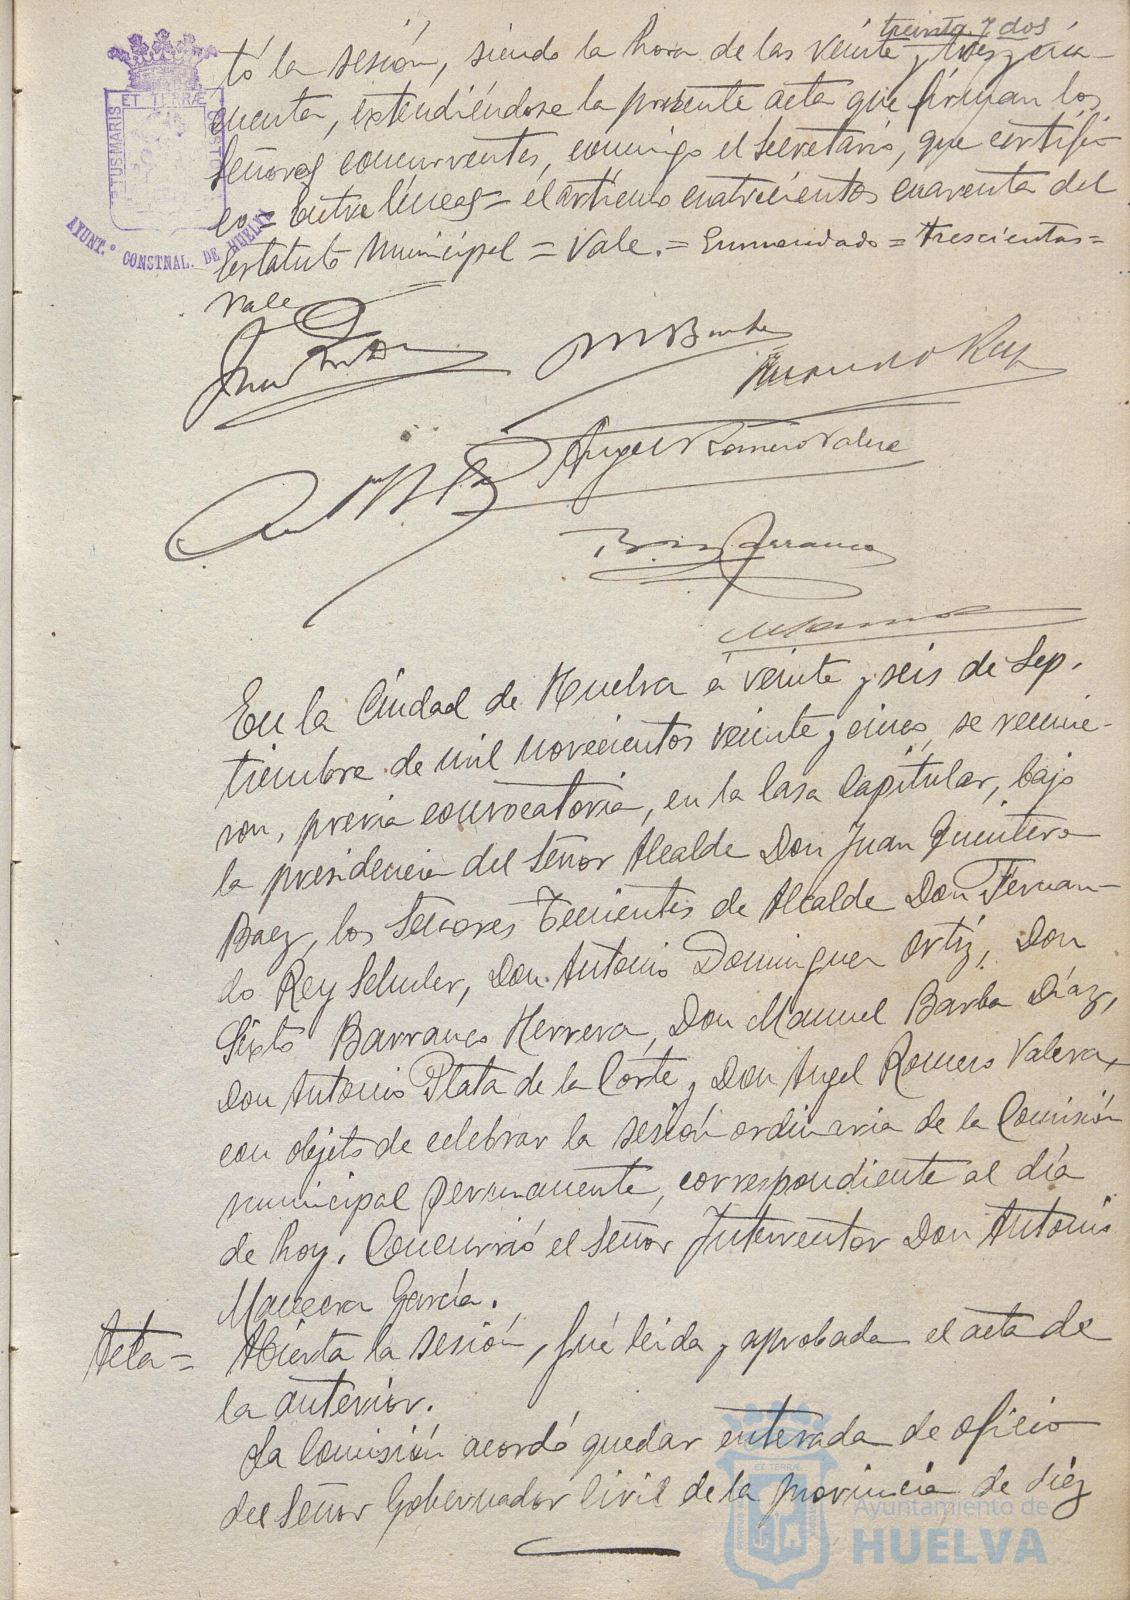 treinta y dos
tó la sesión, siendo la hora de las veinte y tres y cin-
cuenta, extendiéndose la presente acta que firman los
Señores concurrentes, conmigo el Secretario, que certifi-
co = Entre líneas = el artículo cuatrocientos cuarenta del
Estatuto Municipal = Vale. = Enmendado = trescientas =
Vale
PORTUS MARIS ET TERRÆ CUSTODIA
AYUNT.º CONSTNAL. DE HUELVA
M Barba
Fernando Rey
Angel Romero Valera
Barranco
En la Ciudad de Huelva á veinte y seis de Sep-
tiembre de mil novecientos veinte y cinco, se reunie-
ron, previa convocatoria, en la Casa Capitular, bajo
la presidencia del Señor Alcalde Don Juan Quintero
Baez, los Señores Tenientes de Alcalde Don Fernan-
do Rey Schuler, Don Antonio Dominguez Ortiz, Don
Sixto Barranco Herrera, Don Manuel Barba Díaz,
Don Antonio Plata de la Corte y Don Angel Romero Valera,
con objeto de celebrar la sesión ordinaria de la Comisión
municipal permanente, correspondiente al día
de hoy. Concurrió el Señor Interventor Don Antonio
García.
Acta = Abierta la sesión, fué leida y aprobada el acta de
la anterior.
La Comisión acordó quedar enterada de oficio
del Señor Gobernador Civil de la provincia de diez
Ayuntamiento de
HUELVA